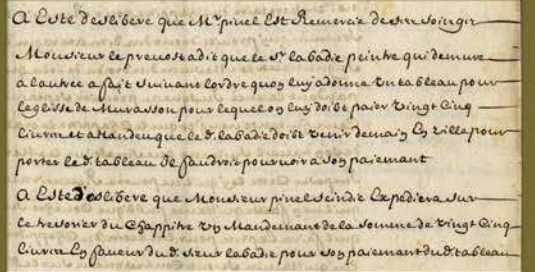 A Esté deslibéré que Mr pinel Est Remercié de ses soingtz
Monsieur le prevost a dit que le Sr labadie peintre qui demure
a lautrec a fait suivant lordre quon luy a donné un tableau pour
leglisse de Murasson pour lequel on luy doibt paier vingt cinq
livres et attandeu que le d. labadie doibt venir demain En ville pour
porter le d. tableau Il faudroit pourvoir a son paiemant
A Esté deslibéré que Monsieur pinel scindic Expediera sur
le tresorier du Chappitre un Mandemant de la somme de vingt Cinq
livres En faveur du d. sieur labadie pour son paiemant du d. tableau